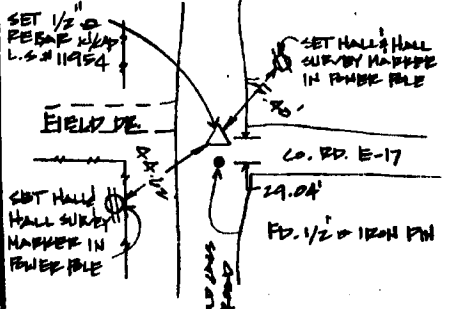 SET 1/2" Ø
REBAR W/CAP
L.S.# 11954
SET HALL & HALL
SURVEY MARKER
IN POWER POLE
FIELD DR.
CO. RD. E-17
29.04'
FD. 1/2" Ø IRON PIN
SET HALL &
HALL SURVEY
MARKER IN
POWER POLE